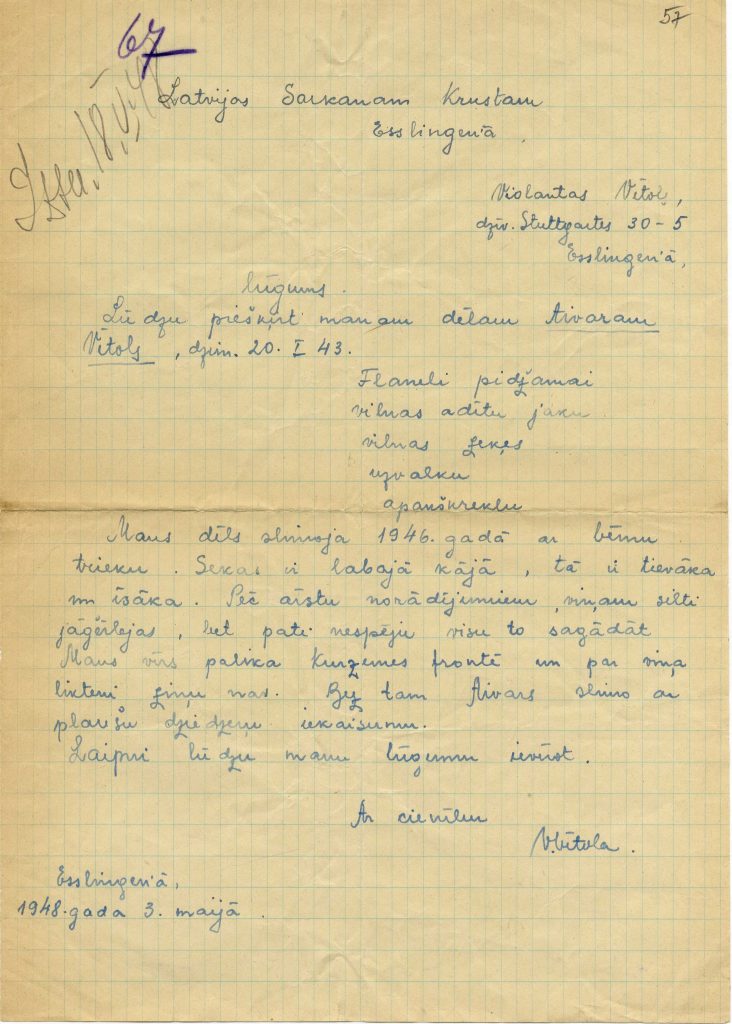 57
67
18.V.48
Latvijas Sarkanam Krustam
Esslingen'ā
Violantas Vītoļ,
dzīv. Stuttgartes 30-5
Esslingen'ā,
lūgums.
Lūdzu piešķirt manam dēlam Aivaram
Vītoļ, dzim. 20. I 43.
Flaneli pidžamai
vilnas adītu jaku
vilnas zeķes
uzvalku
apakškreklu
Mans dēls slimoja 1946. gadā ar bērnu
trieku. Sekas ir labajā kājā, tā ir tievāka
un īsāka. Pēc ārstu norādījumiem, viņam silti
jāģērbjas, bet pati nespēju visu to sagādāt
Mans vīrs palika Kurzemes frontē un par viņa
likteni ziņu nav. Bez tam Aivars slimo ar
plaušu dziedzeņu iekaisumu.
Laipni lūdzu manu lūgumu ievērot.
Ar cieņību
V.Vītola.
Esslingen'ā,
1948. gada 3. maijā.